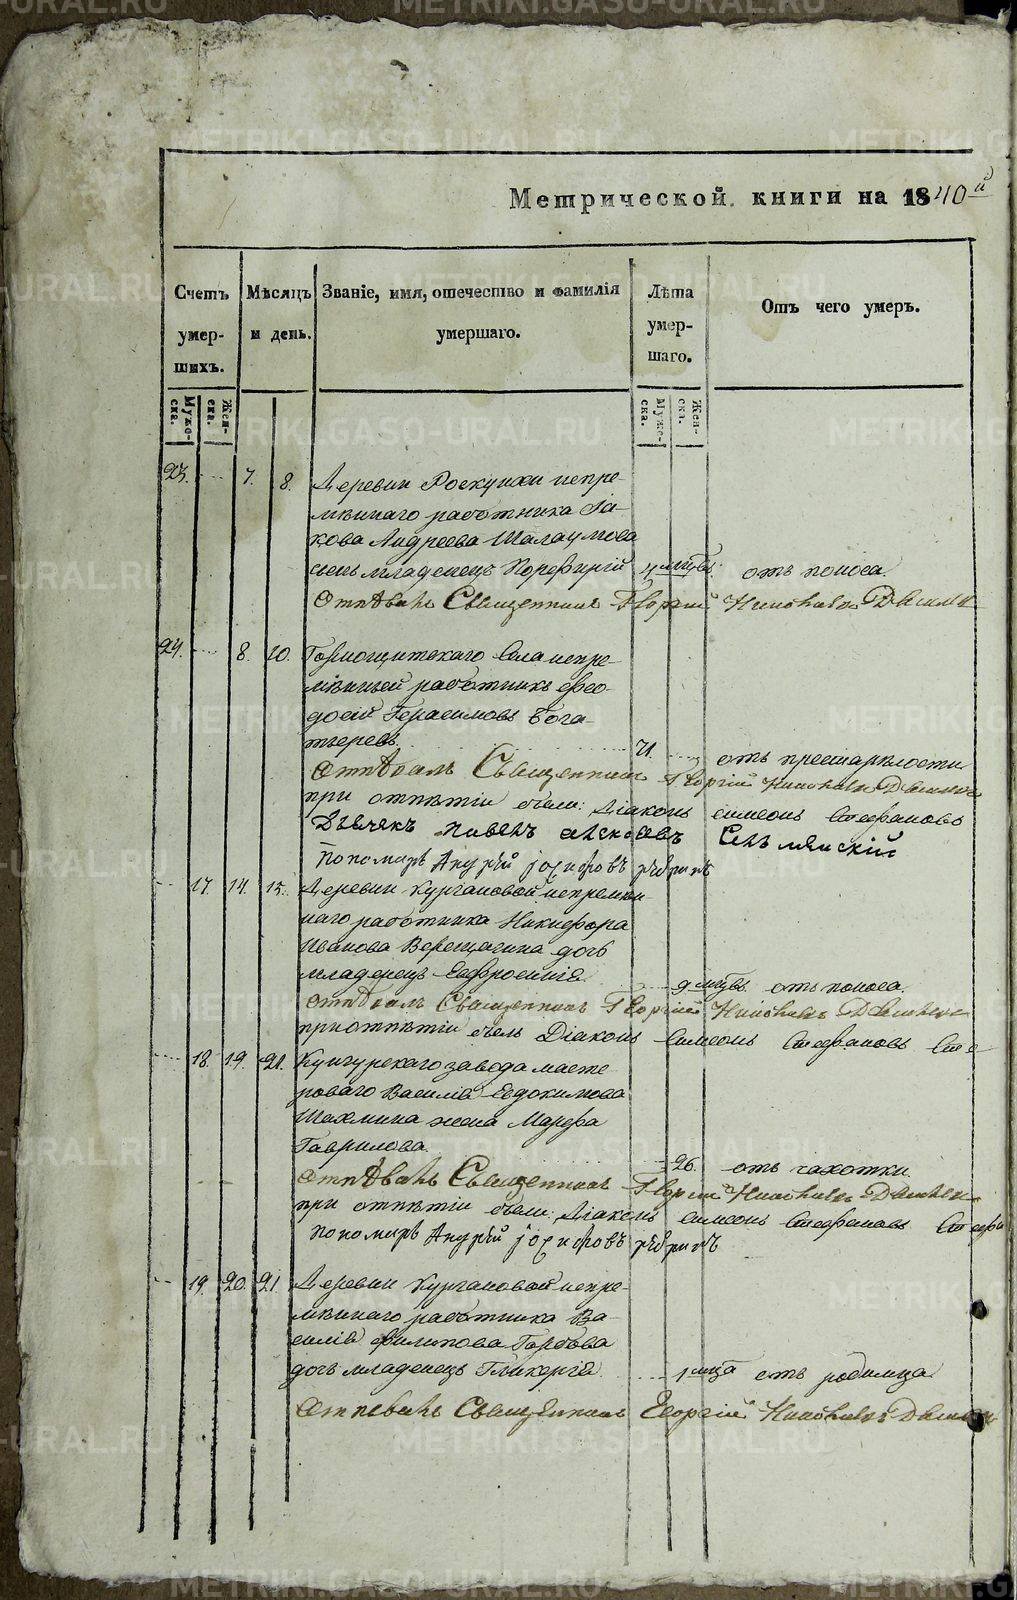 Метрической книги на 1840й
Счетъ умер-шихъ.
Мѣсяцъ и день.
Званіе, имя, отечество и фамилія умершаго.
Лѣта умер-шаго.
Отъ чего умеръ.
Муже-ска.
Жен-ска.
Муже-ска.
Жен-ска.
23. 7. 8. Деревни Роскуихи непре-
мѣннаго работника Іа-
кова Андреева Шалаумова
сынъ младенецъ Порфирій 4 мцвъ. отъ поноса.
Отпѣвалъ Священникъ Георгій
24. 8. 10. Горнощитскаго Села непре-
мѣнный работникъ Ѳео-
досій Герасимовъ Бога-
тыревъ. 71. отъ престарѣлости
Отпѣвалъ Священникъ Георгій
при отпѣтіи были: Діаконъ Симеонъ Стефановъ
Дьячекъ Павелъ Алексѣевъ
Пономарь Андрей
17. 14. 15. Деревни Кургановой непремѣн-
наго работника Никифора
Иванова Верещагина дочь
младенецъ Евфросинія 9 мцвъ. отъ поноса.
Отпѣвалъ Священникъ Георгій
при отпѣтіи былъ Діаконъ Симеонъ Стефановъ
18. 19. 21. Кунгурскаго завода масте-
роваго Василія Евдокимова
Шахмина жена Марфа
Гаврилова. 26. отъ чахотки
Отпѣвалъ Священникъ Георгій
при отпѣтіи были: Діаконъ Симеонъ Стефановъ
Пономарь Андрей
19. 20. 21. Деревни Кургановой непре-
мѣннаго работника Ва-
силія Филипова Горбова
дочь младенецъ Гликерія 1 мца отъ родимца
Отпевалъ Священникъ Георгій
METRIKI.GASO-URAL.RU